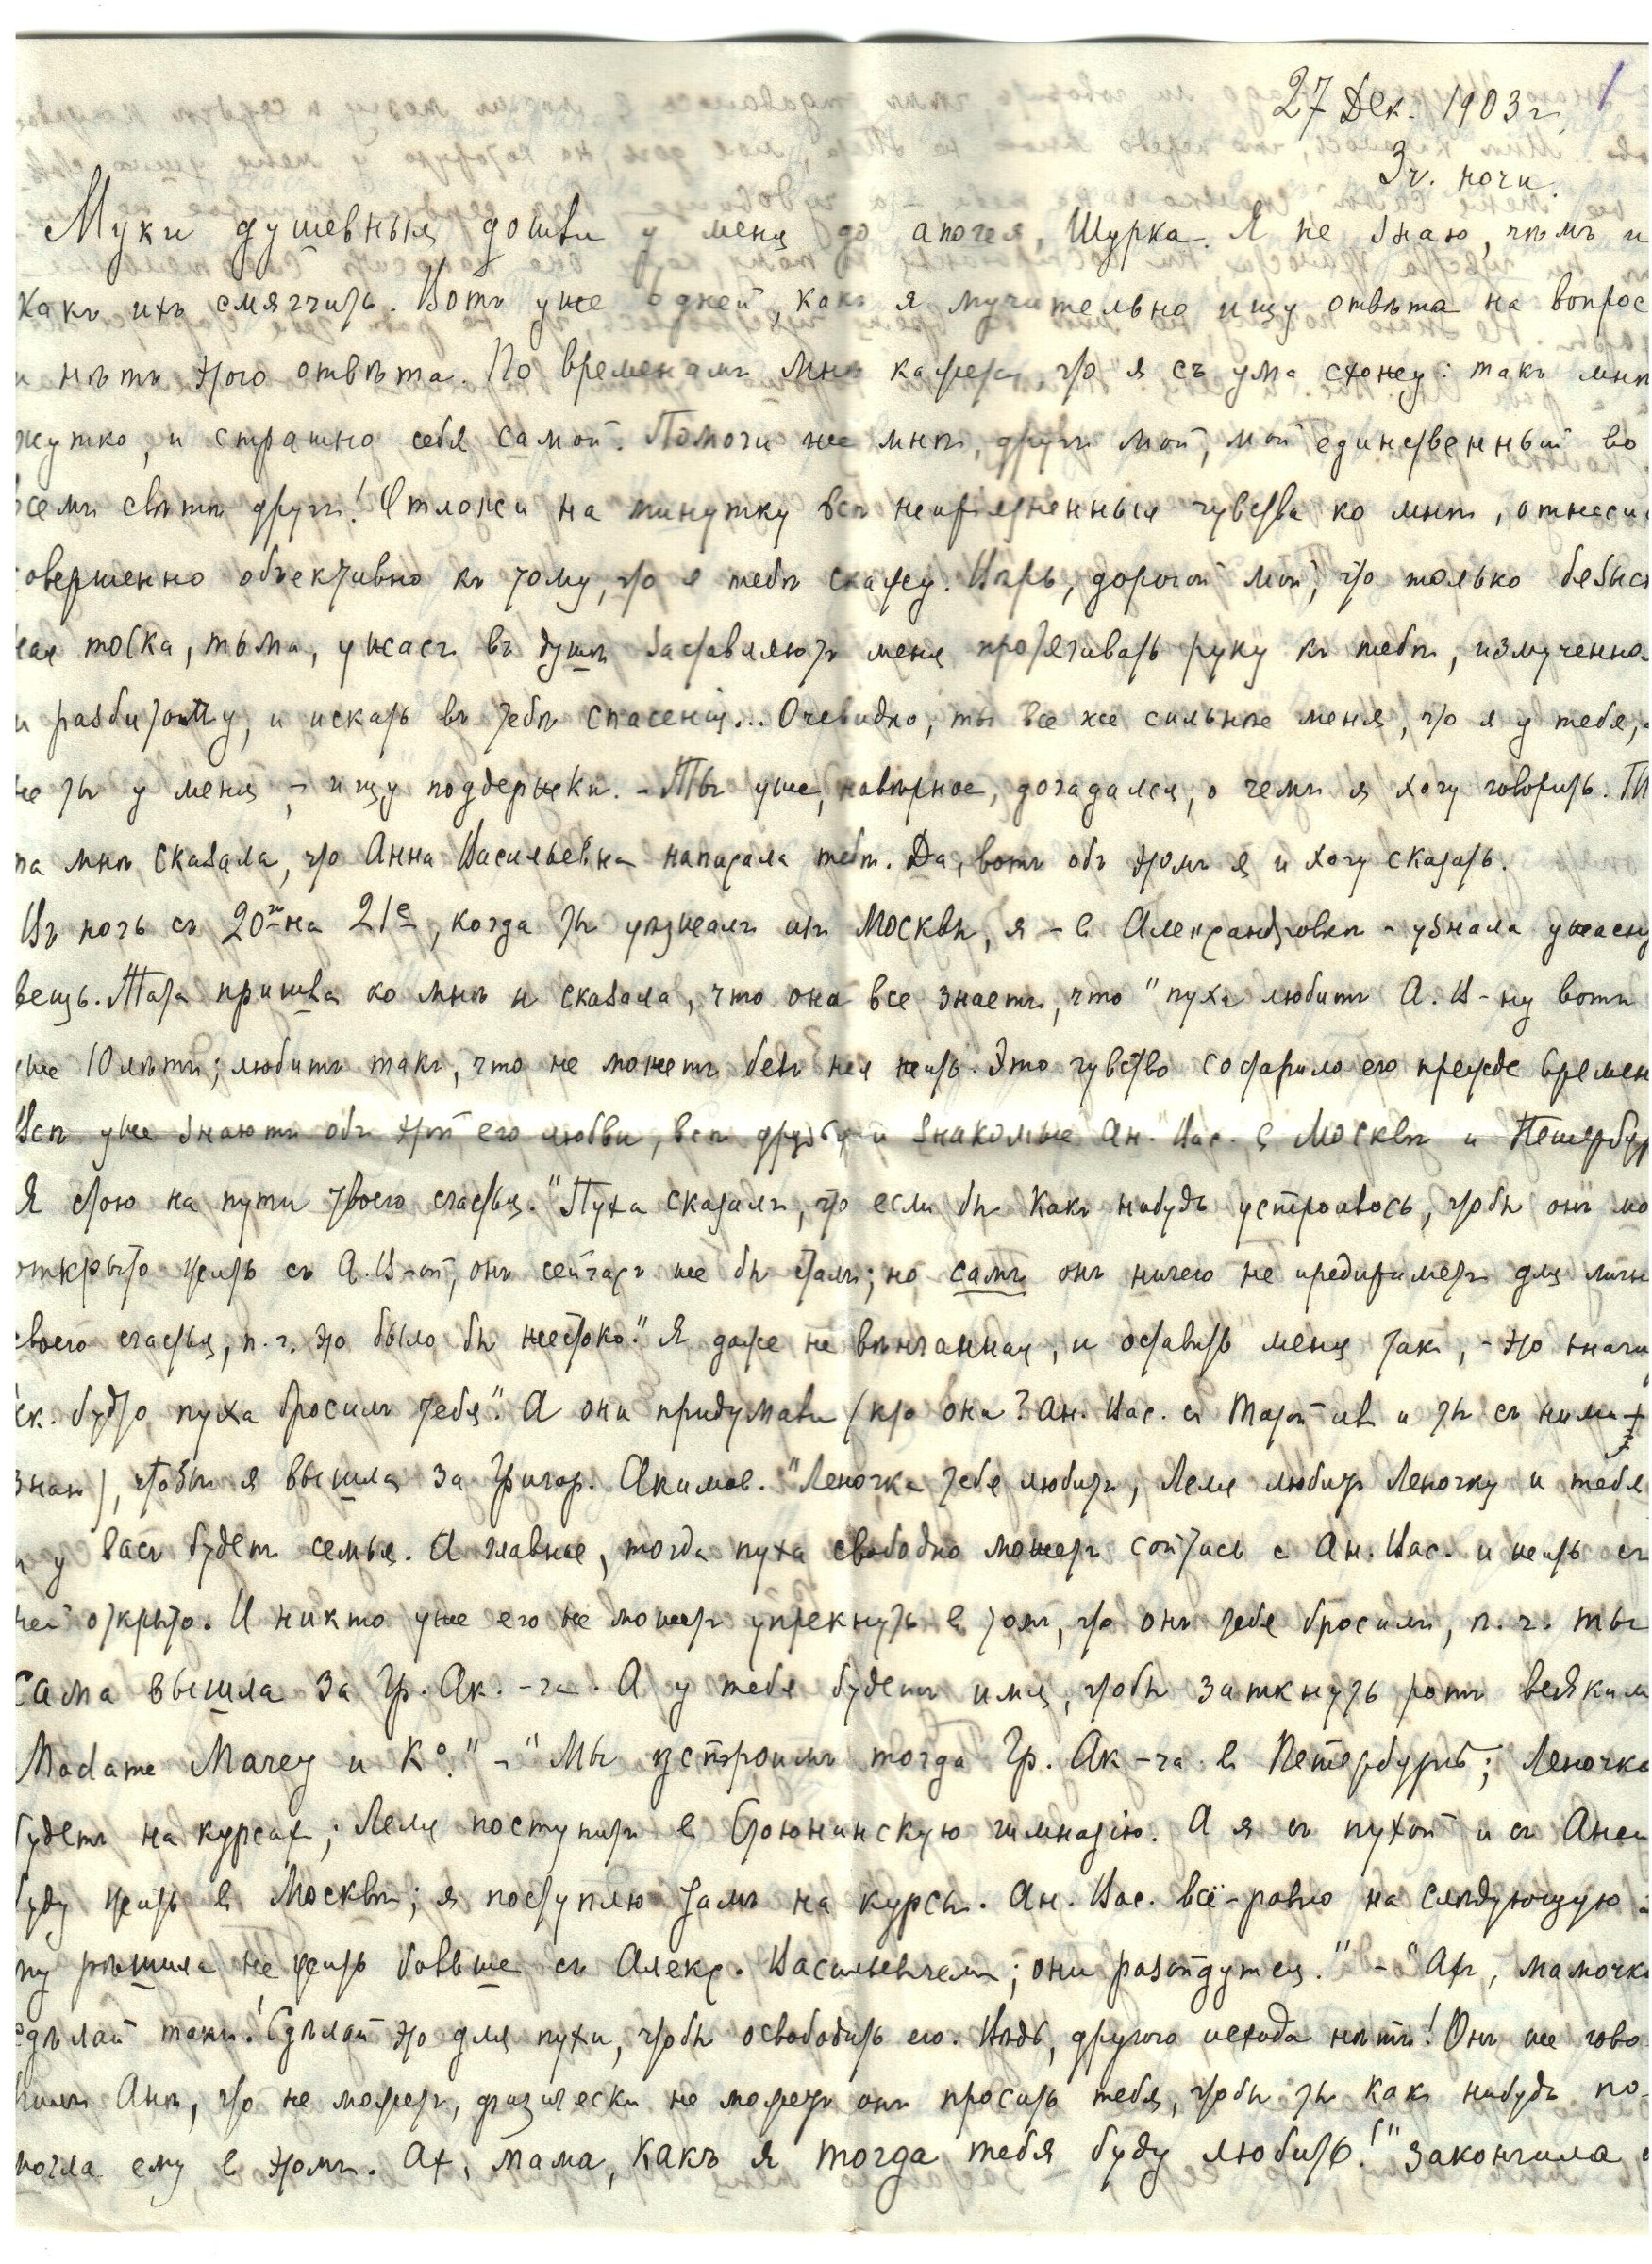 27 Дек. 1903 г.
3 ч. ночи.
Муки душевныя дошли у меня до апогея, Шурка. Я не знаю, чѣмъ и
какъ ихъ смягчить. Вотъ уже 6 дней, какъ я мучительно ищу отвѣта на вопрос
и нѣтъ этого отвѣта. По временамъ мнѣ кажется, что я съ ума схожу: такъ мнѣ
жутко, и страшно себя самой. Помоги же мнѣ, другъ мой, мой единственный во
всемъ свѣтѣ другъ! Отложи на минутку всѣ непріязненныя чувства ко мнѣ, отнесис
совершенно объективно къ тому, что я тебѣ скажу. Вѣрь, дорогой мой, что только безыс
ная тоска, тьма, ужасъ въ душѣ заставляютъ меня протягивать руку къ тебѣ, измученно
и разбитому, и искать въ тебѣ спасенія... Очевидно, ты все же сильнѣе меня, что я у тебя, а
не ты у меня, – ищу поддержки. – Ты уже, навѣрное, догадался, о чемъ я хочу говорить. Та
та мнѣ сказала, что Анна Васильевна написала тебѣ. Да, вотъ объ этомъ я и хочу сказать.
Въ ночь съ 20го на 21е, когда ты уѣзжалъ изъ Москвы, я – в Александровкѣ – узнала ужасну
вещь. Тата пришла ко мнѣ и сказала, что она все знаетъ, что "пуха любитъ А. В-ну вотъ
уже 10 лѣтъ; любитъ такъ, что не можетъ безъ нея жить. Это чувство состарило его прежде времен
Всѣ уже знаютъ объ этой его любви, всѣ друзья и знакомые Ан. Вас. в Москвѣ и Петербур
Я стою на пути твоего счастья. "Пуха сказалъ, что если бы какъ нибудь устроилось, чтобы онъ мо
открыто жить съ А. В-ой, онъ сейчасъ же бы сталъ; но самъ онъ ничего не предприметъ для личн
своего счастья, п. ч. это было бы жестоко." Я даже не вѣнчанная, и оставить меня такъ, – это значи
"ск. будто пуха бросилъ тебя." А они придумали (кто они? Ан. Вас. съ Татой ли и ты съ ними –
знаю), чтобы я вышла за Григор. Акимов. "Леночка тебя любитъ, Леля любитъ Леночку и тебя
и у васъ будетъ семья. А главное, тогда пуха свободно можетъ сойтись с Ан. Вас. и жить съ
ней открыто. И никто уже его не можетъ упрекнуть в томъ, что онъ тебя бросилъ, п. ч. ты
сама вышла за Гр. Ак.-ча. А у тебя будетъ имя, чтобы заткнуть ротъ всякимъ
Madame Мачеу и К°." – "Мы устроимъ тогда Гр. Ак-ча в Петербургѣ; Леночка
будетъ на курсах; Леля поступитъ в Стоюнинскую гимназію. А я съ пухой и съ Аней
буду жить в Москвѣ; я поступлю тамъ на курсы. Ан. Вас. всё-равно на слѣдующую
му рѣшила не жить больше съ Алекс. Васильевичемъ; они разойдутся." – "Ах, мамочка
сдѣлай такъ! Сдѣлай это для пухи, чтобы освободить его. Вѣдь, другого исхода нѣтъ! Онъ же гово
рилъ Анѣ, что не можетъ, физически не можетъ онъ просить тебя, чтобы ты какъ нибудь по-
могла ему в этомъ. Ах, мама, какъ я тогда тебя буду любить!" закончила